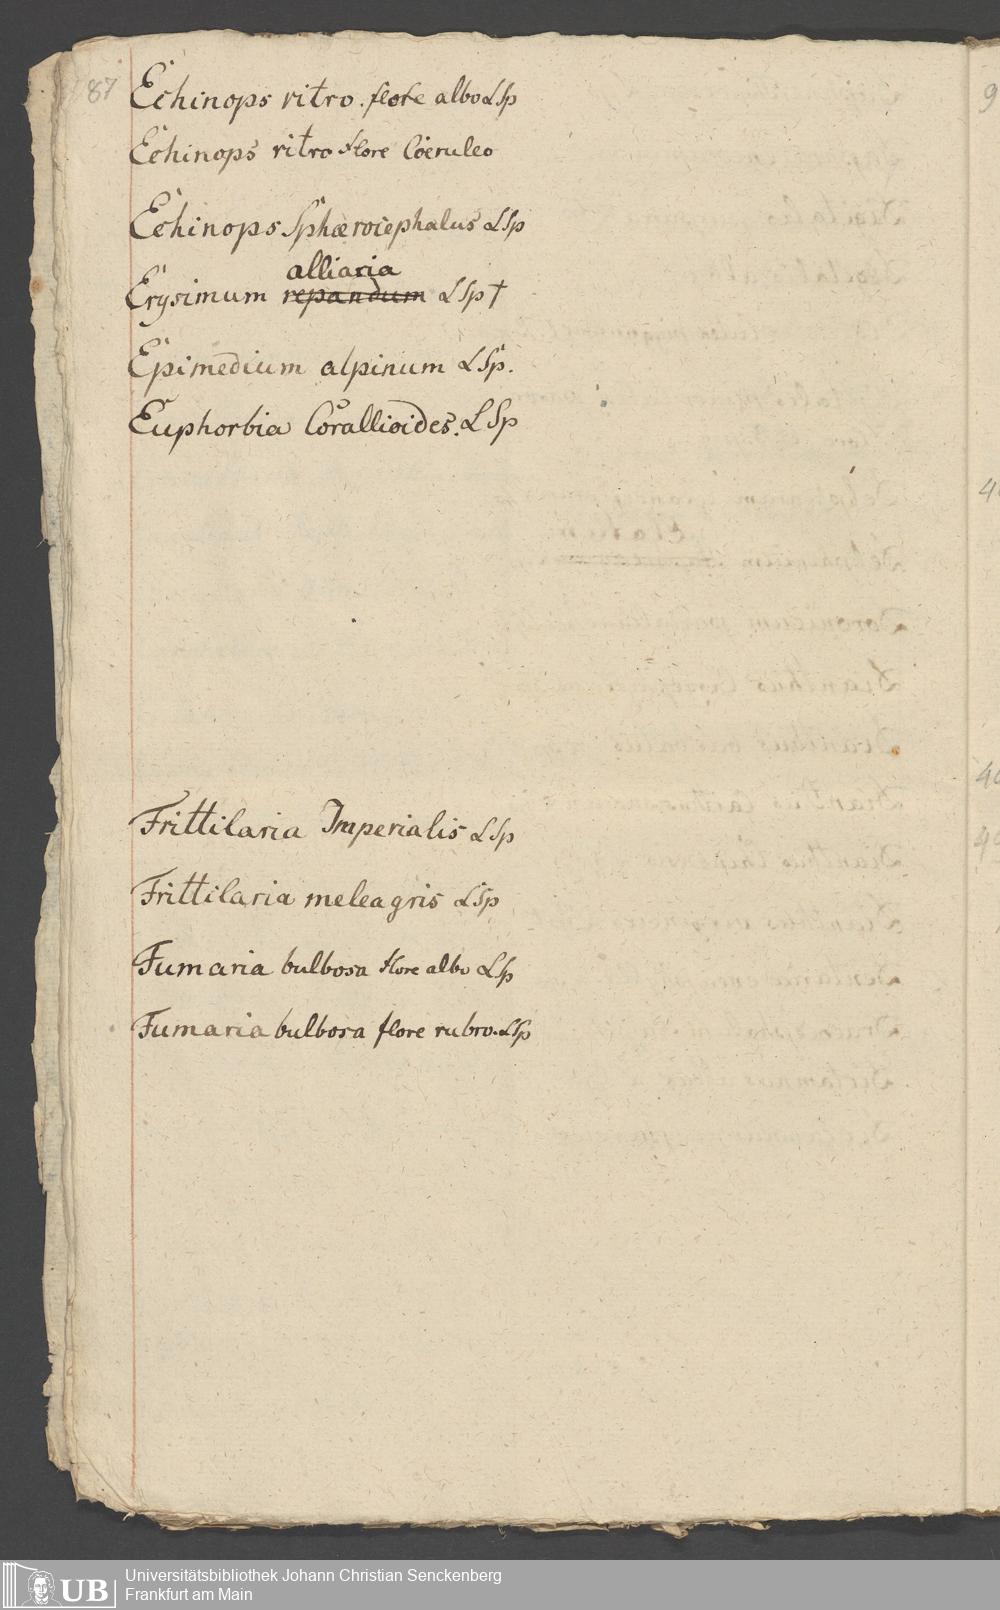 87
Echinops ritro. flore albo LSp
Echinops ritro flore Coeruleo
Echinops Sphærocephalus LSp
alliaria
Erysimum repandum LSp †
Epimedium alpinum LSp.
Euphorbia Corallioides. LSp
Frittilaria Imperialis LSp
Frittilaria meleagris LSp
Fumaria bulbosa flore albo LSp
Fumaria bulbosa flore rubro. LSp
UB
Universitätsbibliothek Johann Christian Senckenberg
Frankfurt am Main